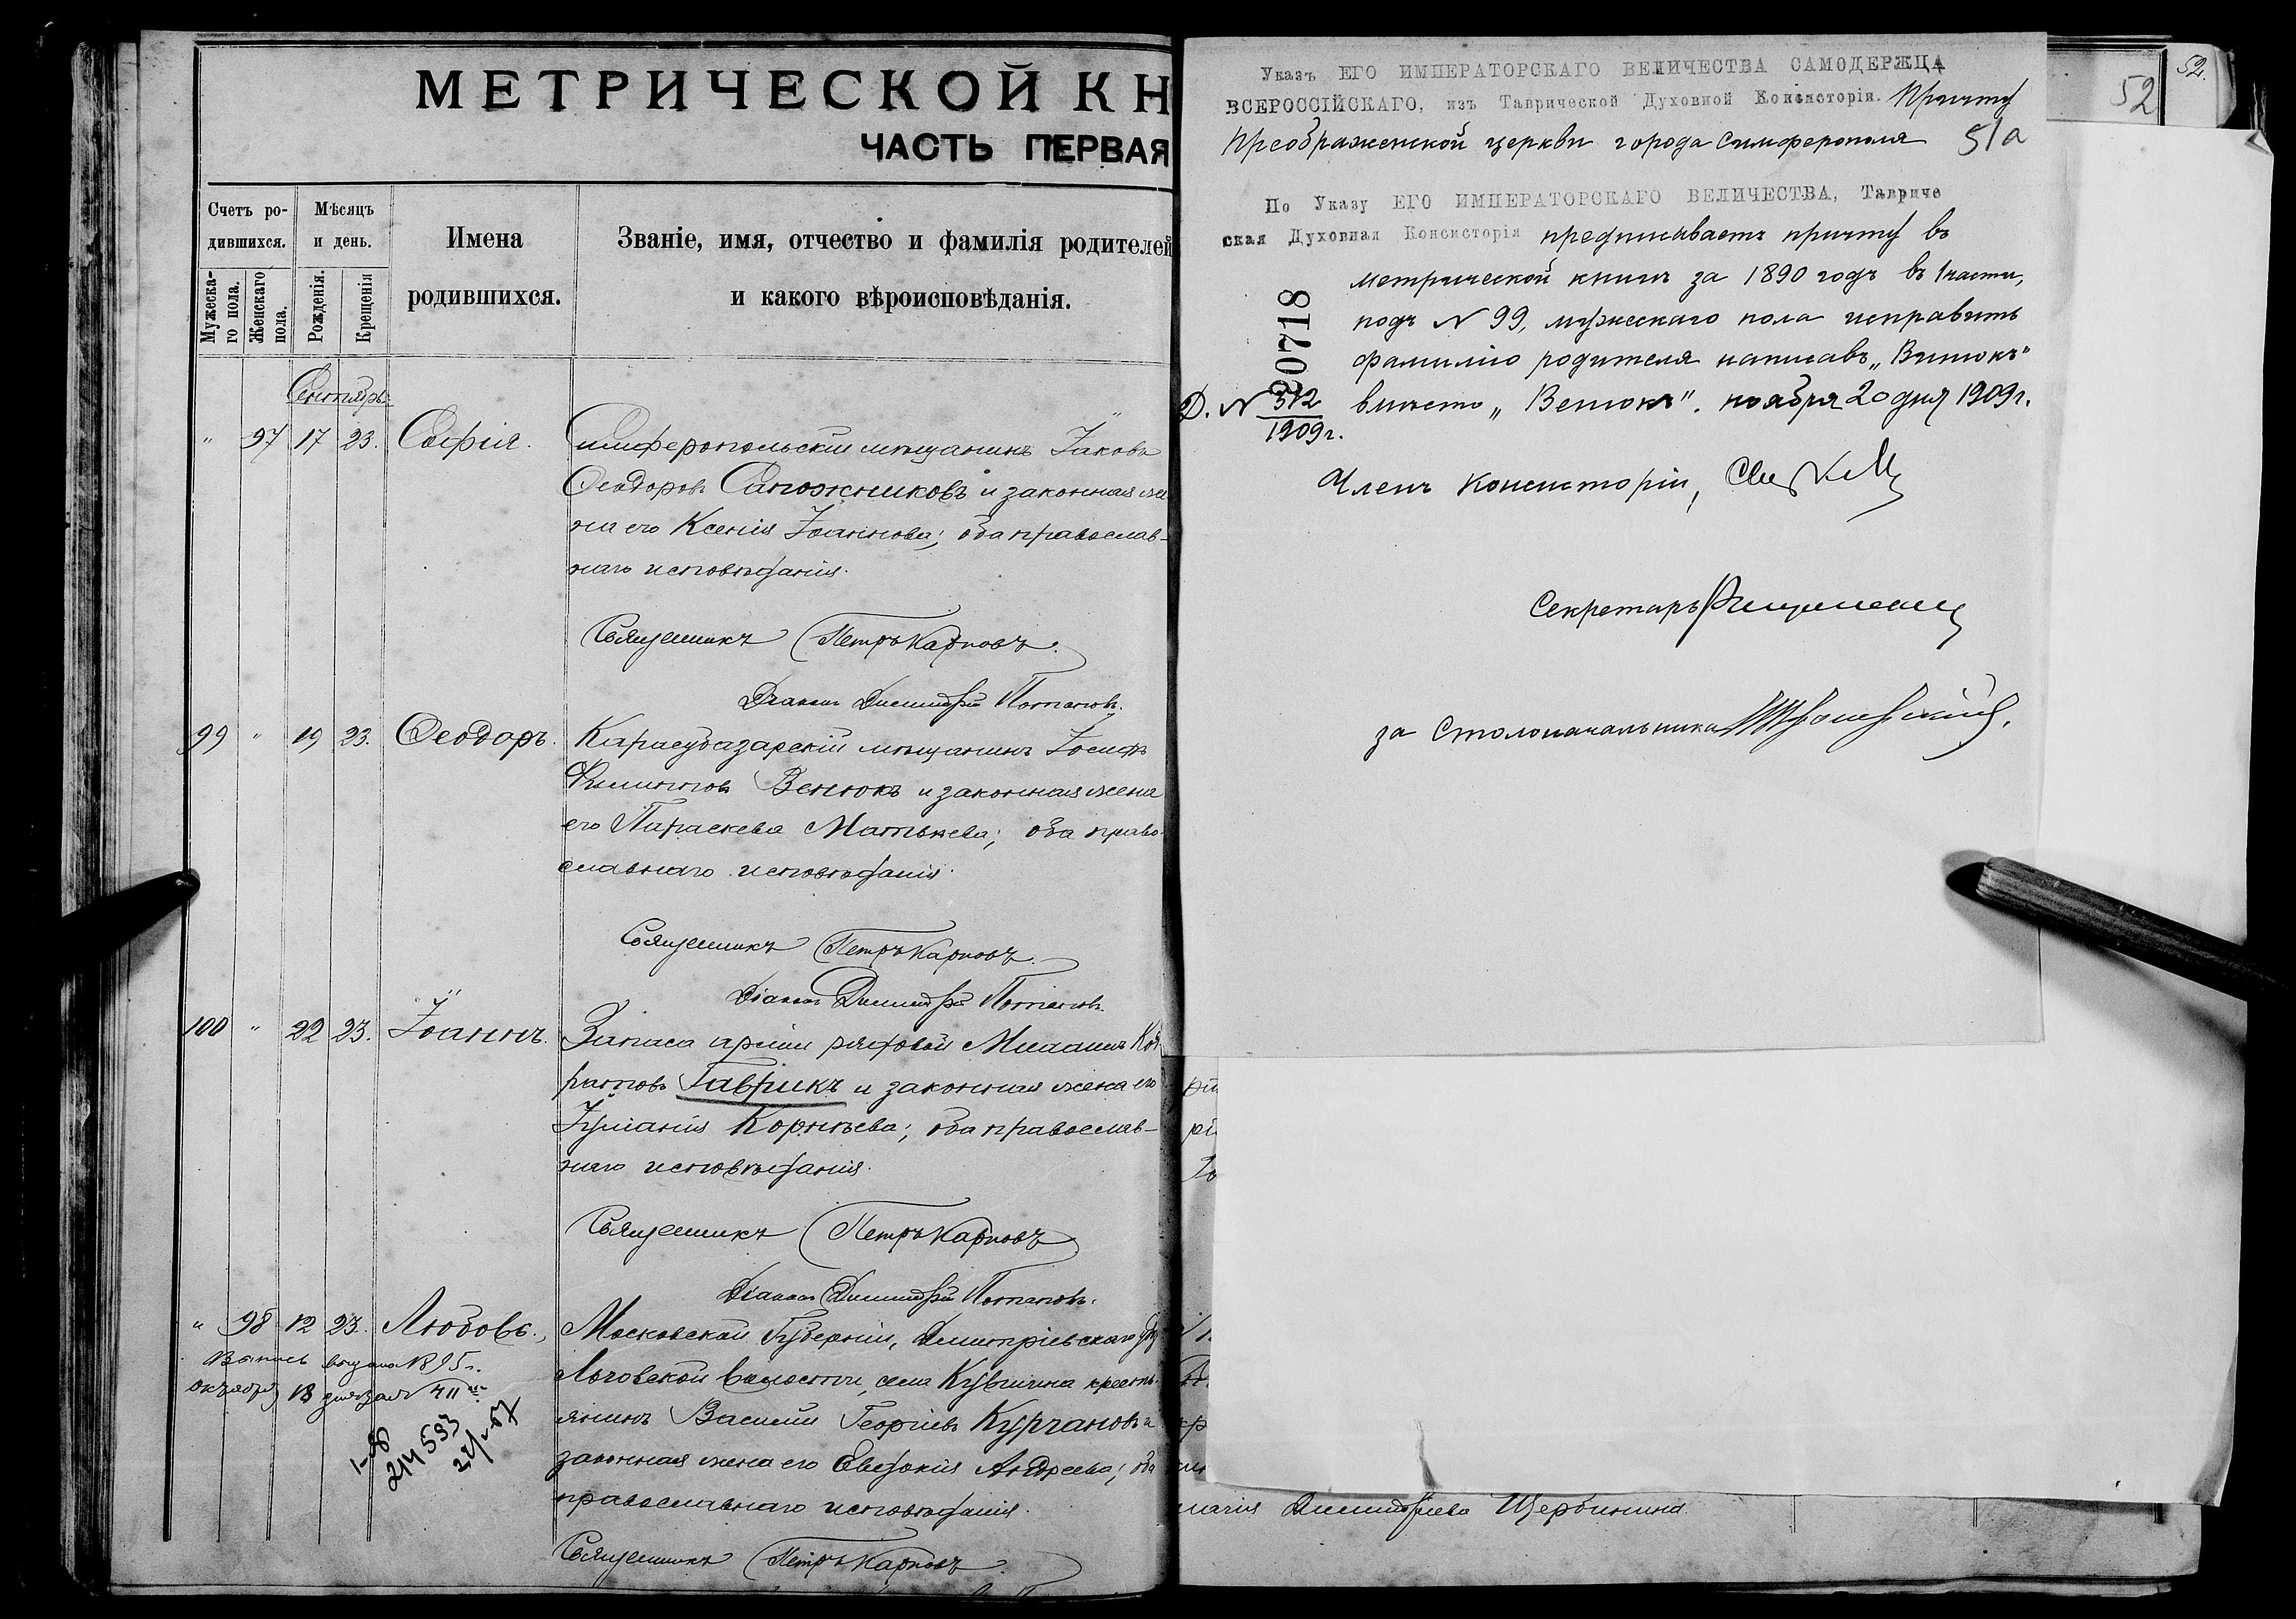 МЕТРИЧЕСКОЙ КН
ЧАСТЬ ПЕРВАЯ
Счетъ ро-
дившихся.
Мужеска-
го пола.
Женскаго
пола.
Мѣсяцъ
и день.
Рожденія.
Крещенія
Имена
родившихся.
Званіе, имя, отчество и фамилія родителей
и какого вѣроисповѣданія.
Сентябрь
" 97 17 23. Софія.
Симферопольскій мѣщанинъ Іаковъ
Ѳеодоровъ Сапожниковъ и законная же
на его Ксенія Іоаннова; оба православ-
наго исповѣданія.
Священникъ Петръ Карповъ.
Діаконъ Димитрій Потаповъ.
99 " 19 23. Ѳеодоръ.
Карасубазарскій мѣщанинъ Іосифъ
Филипповъ Венюкъ и законная жена
его Параскева Матѳеева; оба право-
славнаго исповѣданія.
Священникъ Петръ Карповъ.
Діаконъ Димитрій Потаповъ.
100 " 22 23. Іоаннъ.
Запаса арміи рядовой Михаилъ Кон
ратовъ Гаврикъ и законная жена его
Іуліанія Корнѣева; оба православ-
наго исповѣданія.
Священникъ Петръ Карповъ
Діаконъ Димитрій Потаповъ.
" 98 12 23. Любовь.
Московской Губерніи, Димитріевскаго
волости, села крестья-
янинъ Василій Георгіевъ Кургановъ и
законная жена его Евдокія Андреева; оба
православнаго исповѣданія.
Священникъ Петръ Карповъ.
Выпись выдана 1895 г.
октября 18 дня за № 411
1-й
214593
Указъ ЕГО ИМПЕРАТОРСКАГО ВЕЛИЧЕСТВА САМОДЕРЖЦА
ВСЕРОССІЙСКАГО, изъ Таврической Духовной Консисторіи. Причту
Преображенской церкви города Симферополя
51а
По Указу ЕГО ИМПЕРАТОРСКАГО ВЕЛИЧЕСТВА, Тавриче
ская Духовная Консисторія предписываетъ причту въ
метрической книгѣ за 1890 годъ въ 1 части,
подъ № 99, мужескаго пола исправить
фамилію родителя написавъ "Витюкъ"
вмѣсто "Венюкъ". ноября 20 дня 1909 г.
20718
Д. № 312
1909 г.
Членъ Консисторіи,
Секретарь
за Столоначальника
52
52.
Димитріева Щербинина.